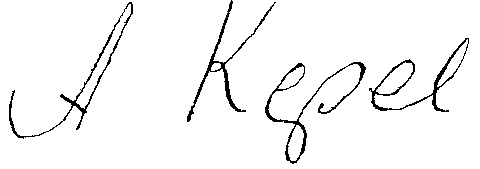 A Kepel